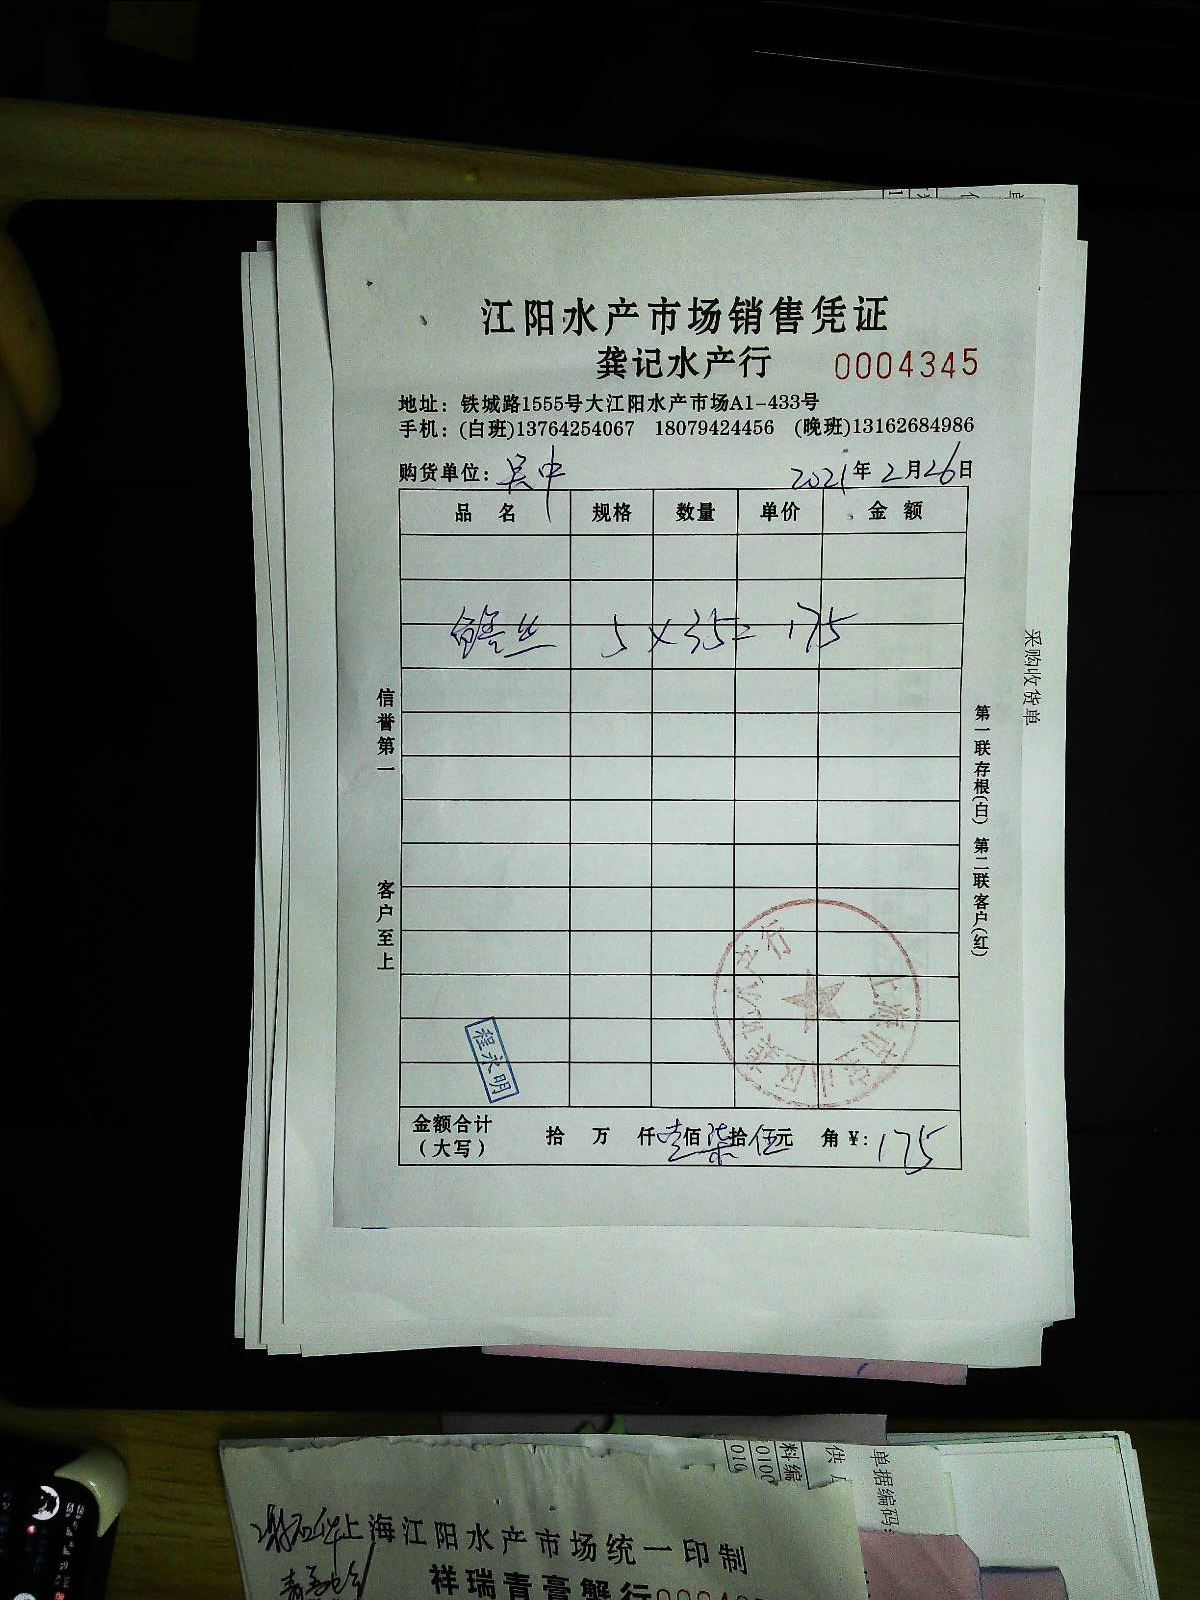 江阳水产市场销售凭证
龚记水产行 0004345
地址：铁城路1555号大江阳水产市场A1-433号
手机：(白班)13764254067 18079424456 (晚班)13162684986
购货单位：吴中 2021年2月26日
品名 规格 数量 单价 金额
鳝丝 5×35=175
信誉第一 客户至上
第一联存根(白) 第二联客户(红)
采购收货单
程永明
金额合计(大写) 拾 万 仟壹佰柒拾伍元 角 ¥: 175
单据编码:
料编
上海江阳水产市场统一印制
祥瑞青膏蟹行